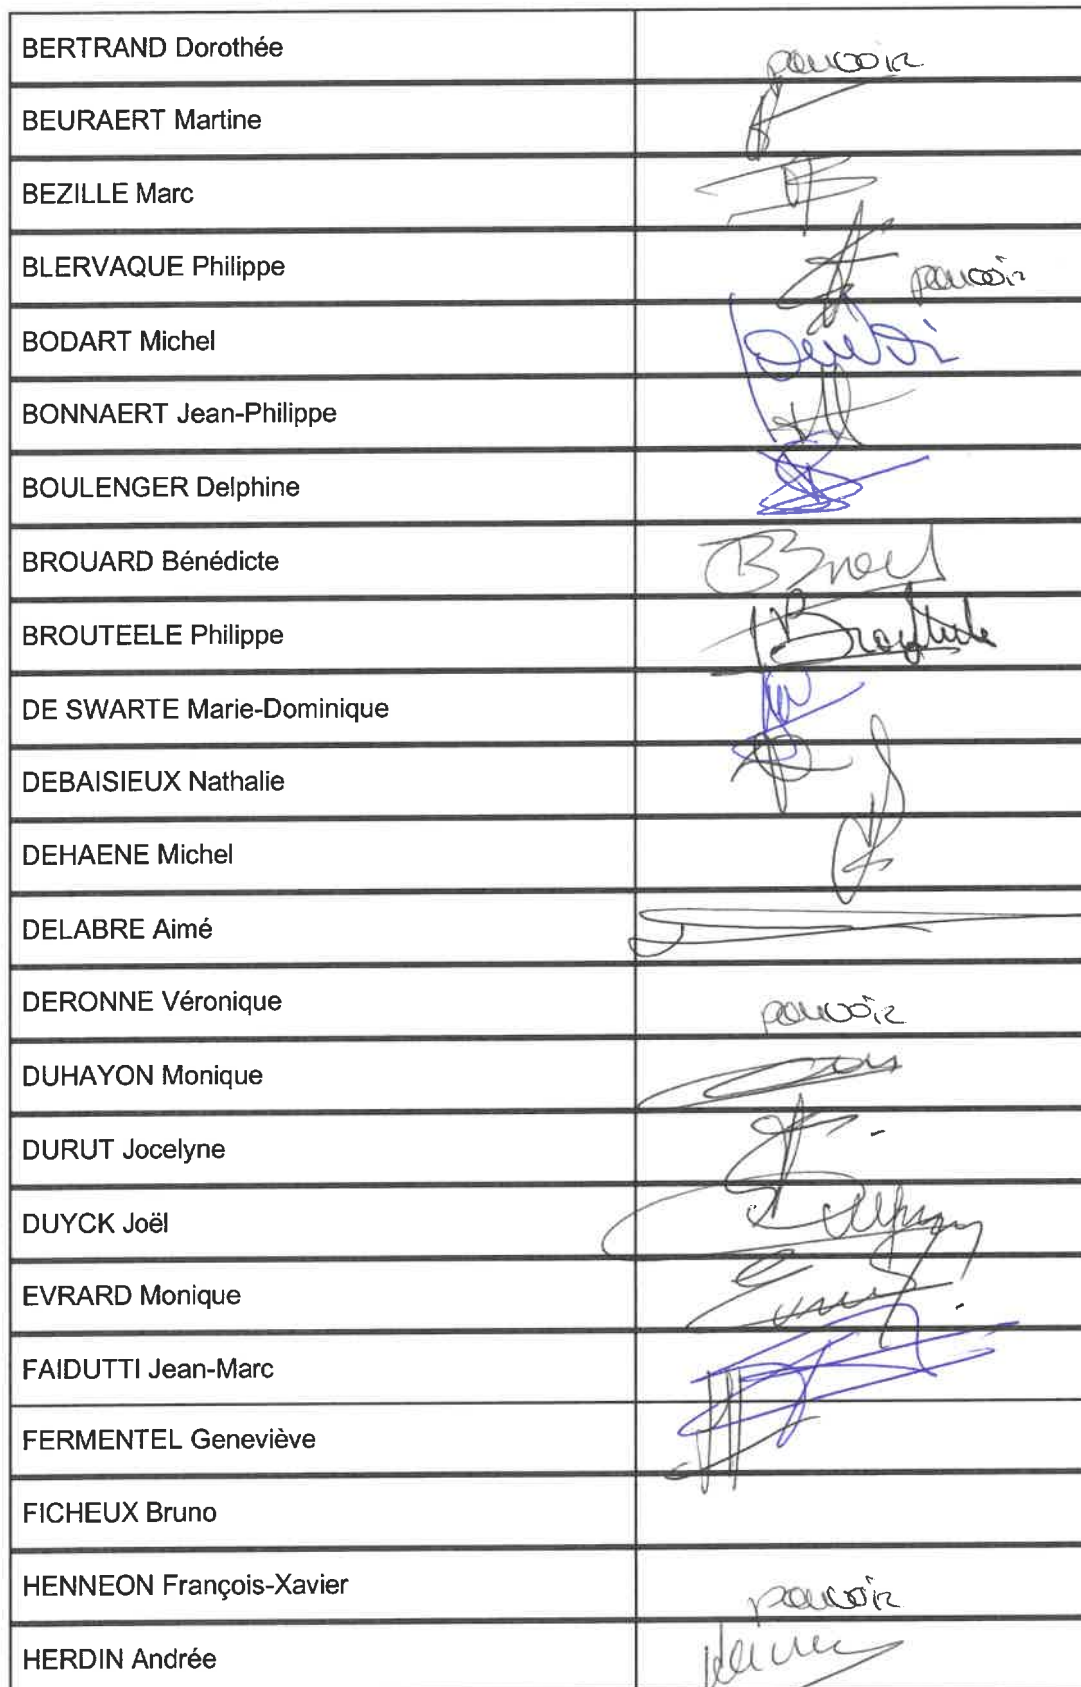 BERTRAND Dorothée pouvoir
BEURAERT Martine
BEZILLE Marc
BLERVAQUE Philippe pouvoir
BODART Michel pouvoir
BONNAERT Jean-Philippe
BOULENGER Delphine
BROUARD Bénédicte
BROUTEELE Philippe
DE SWARTE Marie-Dominique
DEBAISIEUX Nathalie
DEHAENE Michel
DELABRE Aimé
DERONNE Véronique pouvoir
DUHAYON Monique
DURUT Jocelyne
DUYCK Joël
EVRARD Monique
FAIDUTTI Jean-Marc
FERMENTEL Geneviève
FICHEUX Bruno
HENNEON François-Xavier pouvoir
HERDIN Andrée